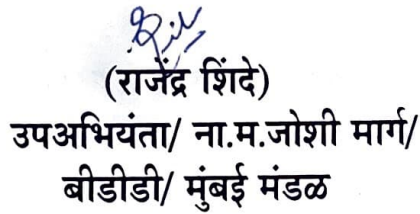 (राजेंद्र शिंदे)
उपअभियंता/ ना.म.जोशी मार्ग/
बीडीडी/ मुंबई मंडळ